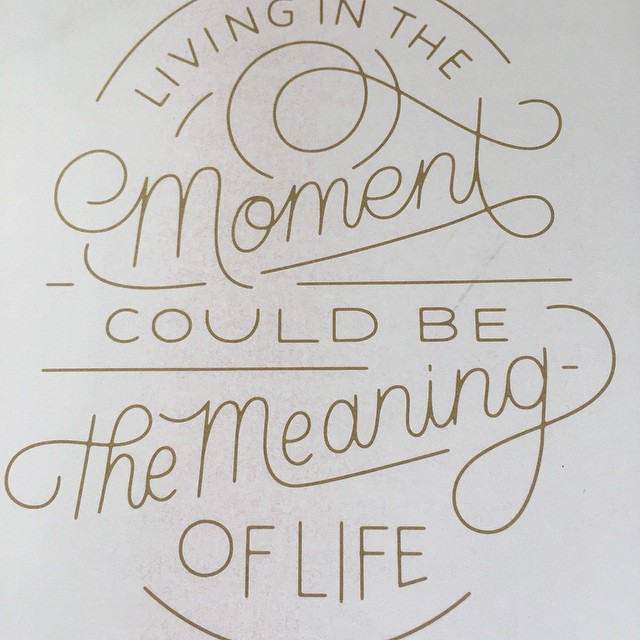 LIVING IN THE
Moment
COULD BE
the Meaning
OF LIFE